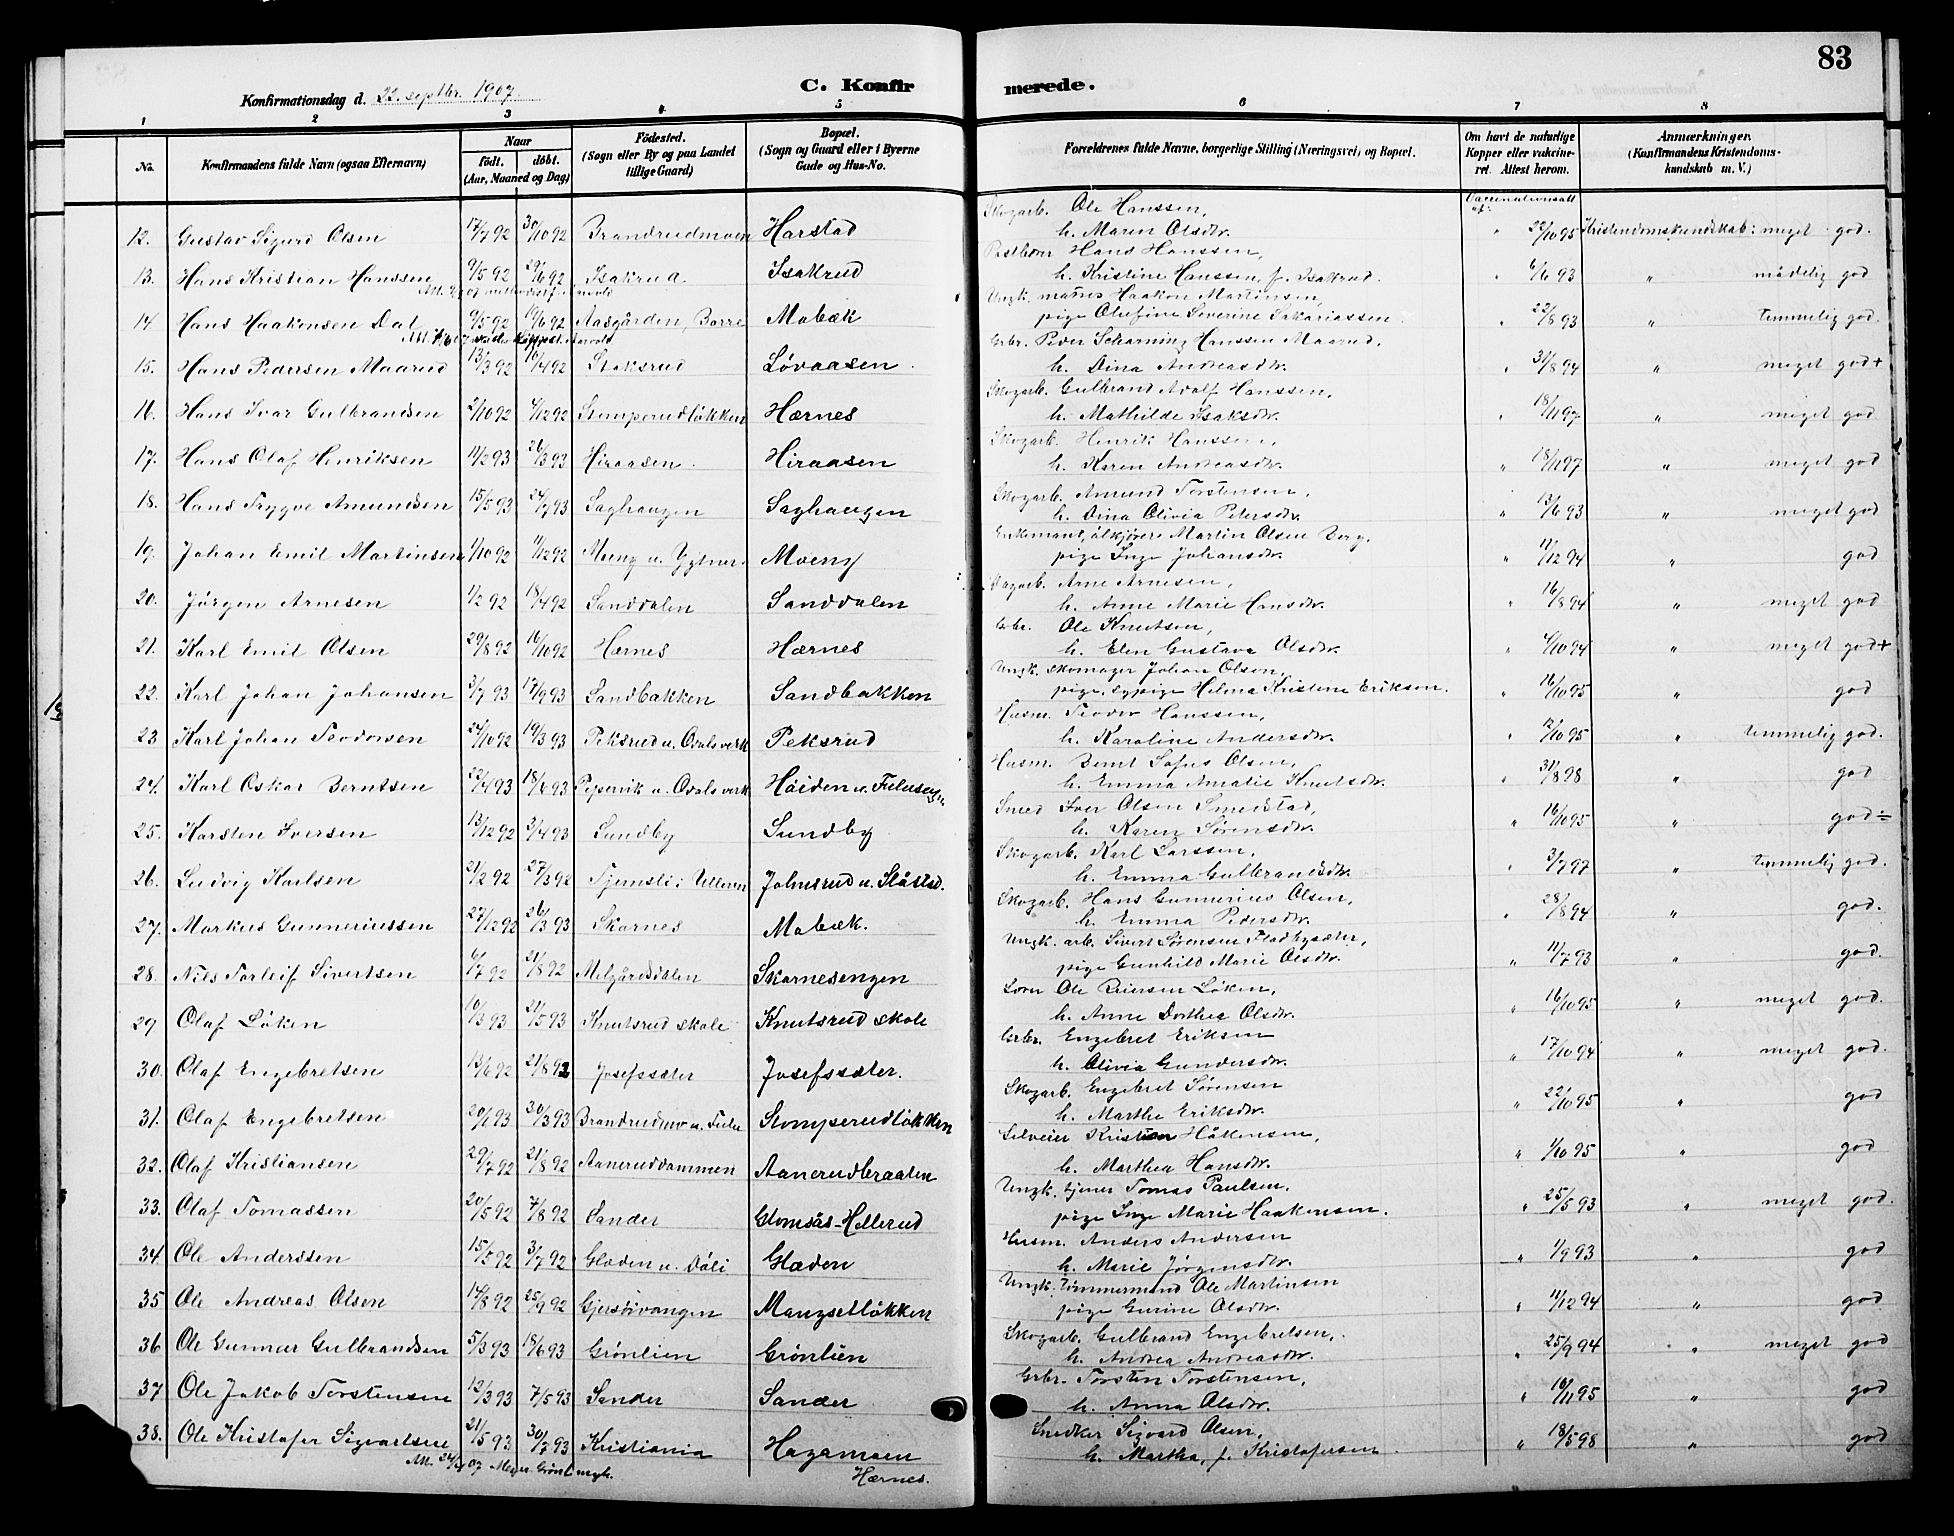 83
Konfirmationsdag d. 22. septbr. 1907.
C. Konfirmerede.
1 2 3 4 5 6 7 8
No. Konfirmandens fulde Navn (ogsaa Efternavn) Naar födt. döbt. (Aar, Maaned og Dag) Födested. (Sogn eller By og paa Landet tillige Gaard) Bopæl. (Sogn og Gaard eller i Byerne Gade og Hus-No. Forældrenes fulde Navne, borgerlige Stilling (Næringsvei) og Bopæl. Om havt de naturlige Kopper eller vakcineret. Attest herom. Anmærkninger. (Konfirmandens Kristendomskundskab m. V.)
Vaccinationsatt. af:
12. Gustav Sigurd Olsen 17/7 92 30/10 92 Brandrudmoen Harstad Skogarb. Ole Hanssen, h. Maren Olsdtr. " 22/10 95 Kristendomskundskab: meget god.
13. Hans Kristian Hanssen 9/5 92 29/6 92 Isakrud. Isakrud Postbom Hans Hanssen, h. Kristine Hanssen, f. Isakrud. " 6/6 93 " mådelig god
14. Hans Haakensen Dal 9/5 92 19/6 92 Aasgården, Borre Mobæk Ungk. Haakon Martinsen, pige Olufine Severine Sakariassen. " 23/8 93 " temmelig god.
15. Hans Pedersen Maarud 13/3 92 16/4 92 Staksrud Løvaasen. Grbr. Peder Scharning Hanssen Maarud, h. Dina Andreasdtr. " 31/8 94 " meget god+
16. Hans Ivar Gulbrandsen 2/10 92 4/12 92 Stomperudløkken Hærnes Skogarb. Gulbrand Adolf Hanssen, h. Mathilde Isaksdtr. " 18/11 97 " meget god
17. Hans Olaf Henriksen 11/2 93 26/3 93 Hiraasen. Hiraasen Skogarb. Henrik Hanssen, h. Karen Andreasdtr. " 18/11 97 " meget god
18. Hans Trygve Amundsen 15/5 93 24/9 93 Saghaugen Saghaugen Skogarb. Amund Torstensen, h. Dina Olivia Petersdtr. " 13/6 93 " meget god
19. Johan Emil Martinsen 1/10 92 11/12 92 Moeng Moeng Enkemand, ølkjører Martin Olsen Berg, pige Inge Johansdtr. " 11/12 94 " god
20. Jørgen Arnesen 1/2 92 18/4 92 Sanddalen Sanddalen Dagarb. Arne Arnesen, h. Anne Marie Hansdtr. " 16/8 94 " meget god
21. Karl Emil Olsen 29/8 92 16/10 92 Hærnes Hærnes Grbr. Ole Knutsen, h. Elen Gustava Olsdtr. " 4/10 94 " meget god+
22. Karl Johan Johansen 3/7 93 17/9 93 Sandbakken Sandbakken Ungk. skomager Johan Olsen, pige, sypige Helma Kristine Eriksen. " 16/10 95 " god
23. Karl Johan Teodorsen 24/10 92 19/3 93 Peksrud u. Odals verk Peksrud Husm. Teodor Hanssen, h. Karoline Andersdtr. " 2/10 95 " temmelig god.
24. Karl Oskar Berntsen 22/4 93 18/6 93 Pepervik u. Odals verk Høiden u. Husm. Bernt Sofus Olsen, h. Emma Amalie Knutsdtr. " 31/8 98 " god
25. Karsten Iversen 13/12 92 3/4 93 Sundby Sundby Smed Iver Olsen Smedstad, h. Karen Sørensdtr. " 16/10 95 " god÷
26. Ludvig Karlsen 21/2 92 27/3 92 Tjernsli i Ulleren Johnsrud u. Slåstad. Skogarb. Karl Larssen, h. Emma Gulbrandsdtr. " 3/7 97 " temmelig god.
27. Markus Gunneriussen 27/12 92 26/3 93 Skarnes Mobæk. Skogarb. Hans Gunnerius Olsen, h. Emma Pedersdtr. " 28/8 94 " god.
28. Nils Torleif Sivertsen 6/7 92 21/8 92 Melgårdsdalen Skarnesengen Ungk. arb. Sivert Sørensen Fladbysæter, pige Gunhild Marie Olsdtr. " 11/7 93 " god.
29 Olaf Løken 10/3 93 21/5 93 Knutsrud skole Knutsrud skole Lærer Ole Reiersen Løken, h. Anne Dorthea Olsdtr. " 16/10 95 " meget god.
30. Olaf Engebretsen 13/6 92 21/8 92 Josefssæter Josefssæter. Grbr. Engebret Eriksen h. Olivia Gundersdtr. " 17/10 94 " meget god.
31. Olaf Engebretsen 20/1 93 30/3 93 Brandrudmo Stomperudløkken Skogarb. Engebret Sørensen h. Marthe Eriksdtr. " 22/10 95 " god
32. Olaf Kristiansen 29/7 92 21/8 92 Aaneruddammen Aanerudbraaten Selveier Kristian Håkensen, h. Marthea Hansdtr. " 1/10 95 " god
33. Olaf Tomassen 20/5 92 7/8 92 Sander Glomsås-Hellerud Ungk. tjener Tomas Paulsen, pige Inge Marie Haakensen. " 25/5 93 " meget god.
34. Ole Anderssen 15/5 92 3/7 92 Glæden u. Døli Glæden Husm. Anders Andersen h. Marie Jørgensdtr. " 1/9 93 " god
35 Ole Andreas Olsen 14/8 92 25/9 92 Gjersøivangen Mangsetløkken Ungk. tømmermand Ole Martinsen pige Gurine Olsdtr. " 11/12 94 " god
36 Ole Gunnar Gulbrandsen 5/3 93 18/6 93 Grönlien Grönlien Skogarb. Gulbrand Engebretsen, h. Andrea Andreasdtr. " 25/9 94 " meget god
37 Ole Jakob Torstensen 12/3 93 7/5 93 Sander Sander Grbr. Torsten Torstensen, h. Anna Olsdtr. " 16/11 95 " god
38. Ole Kristofer Sigvartsen 21/5 93 30/7 93 Kristiania Hagamoen Hærnes. Snedker Sigvard Olsen, h. Martha, f. Kristofersen " 18/5 98 " god